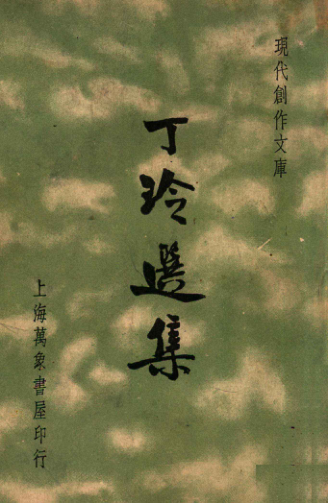 現代創作文庫
丁玲選集
上海萬象書屋印行